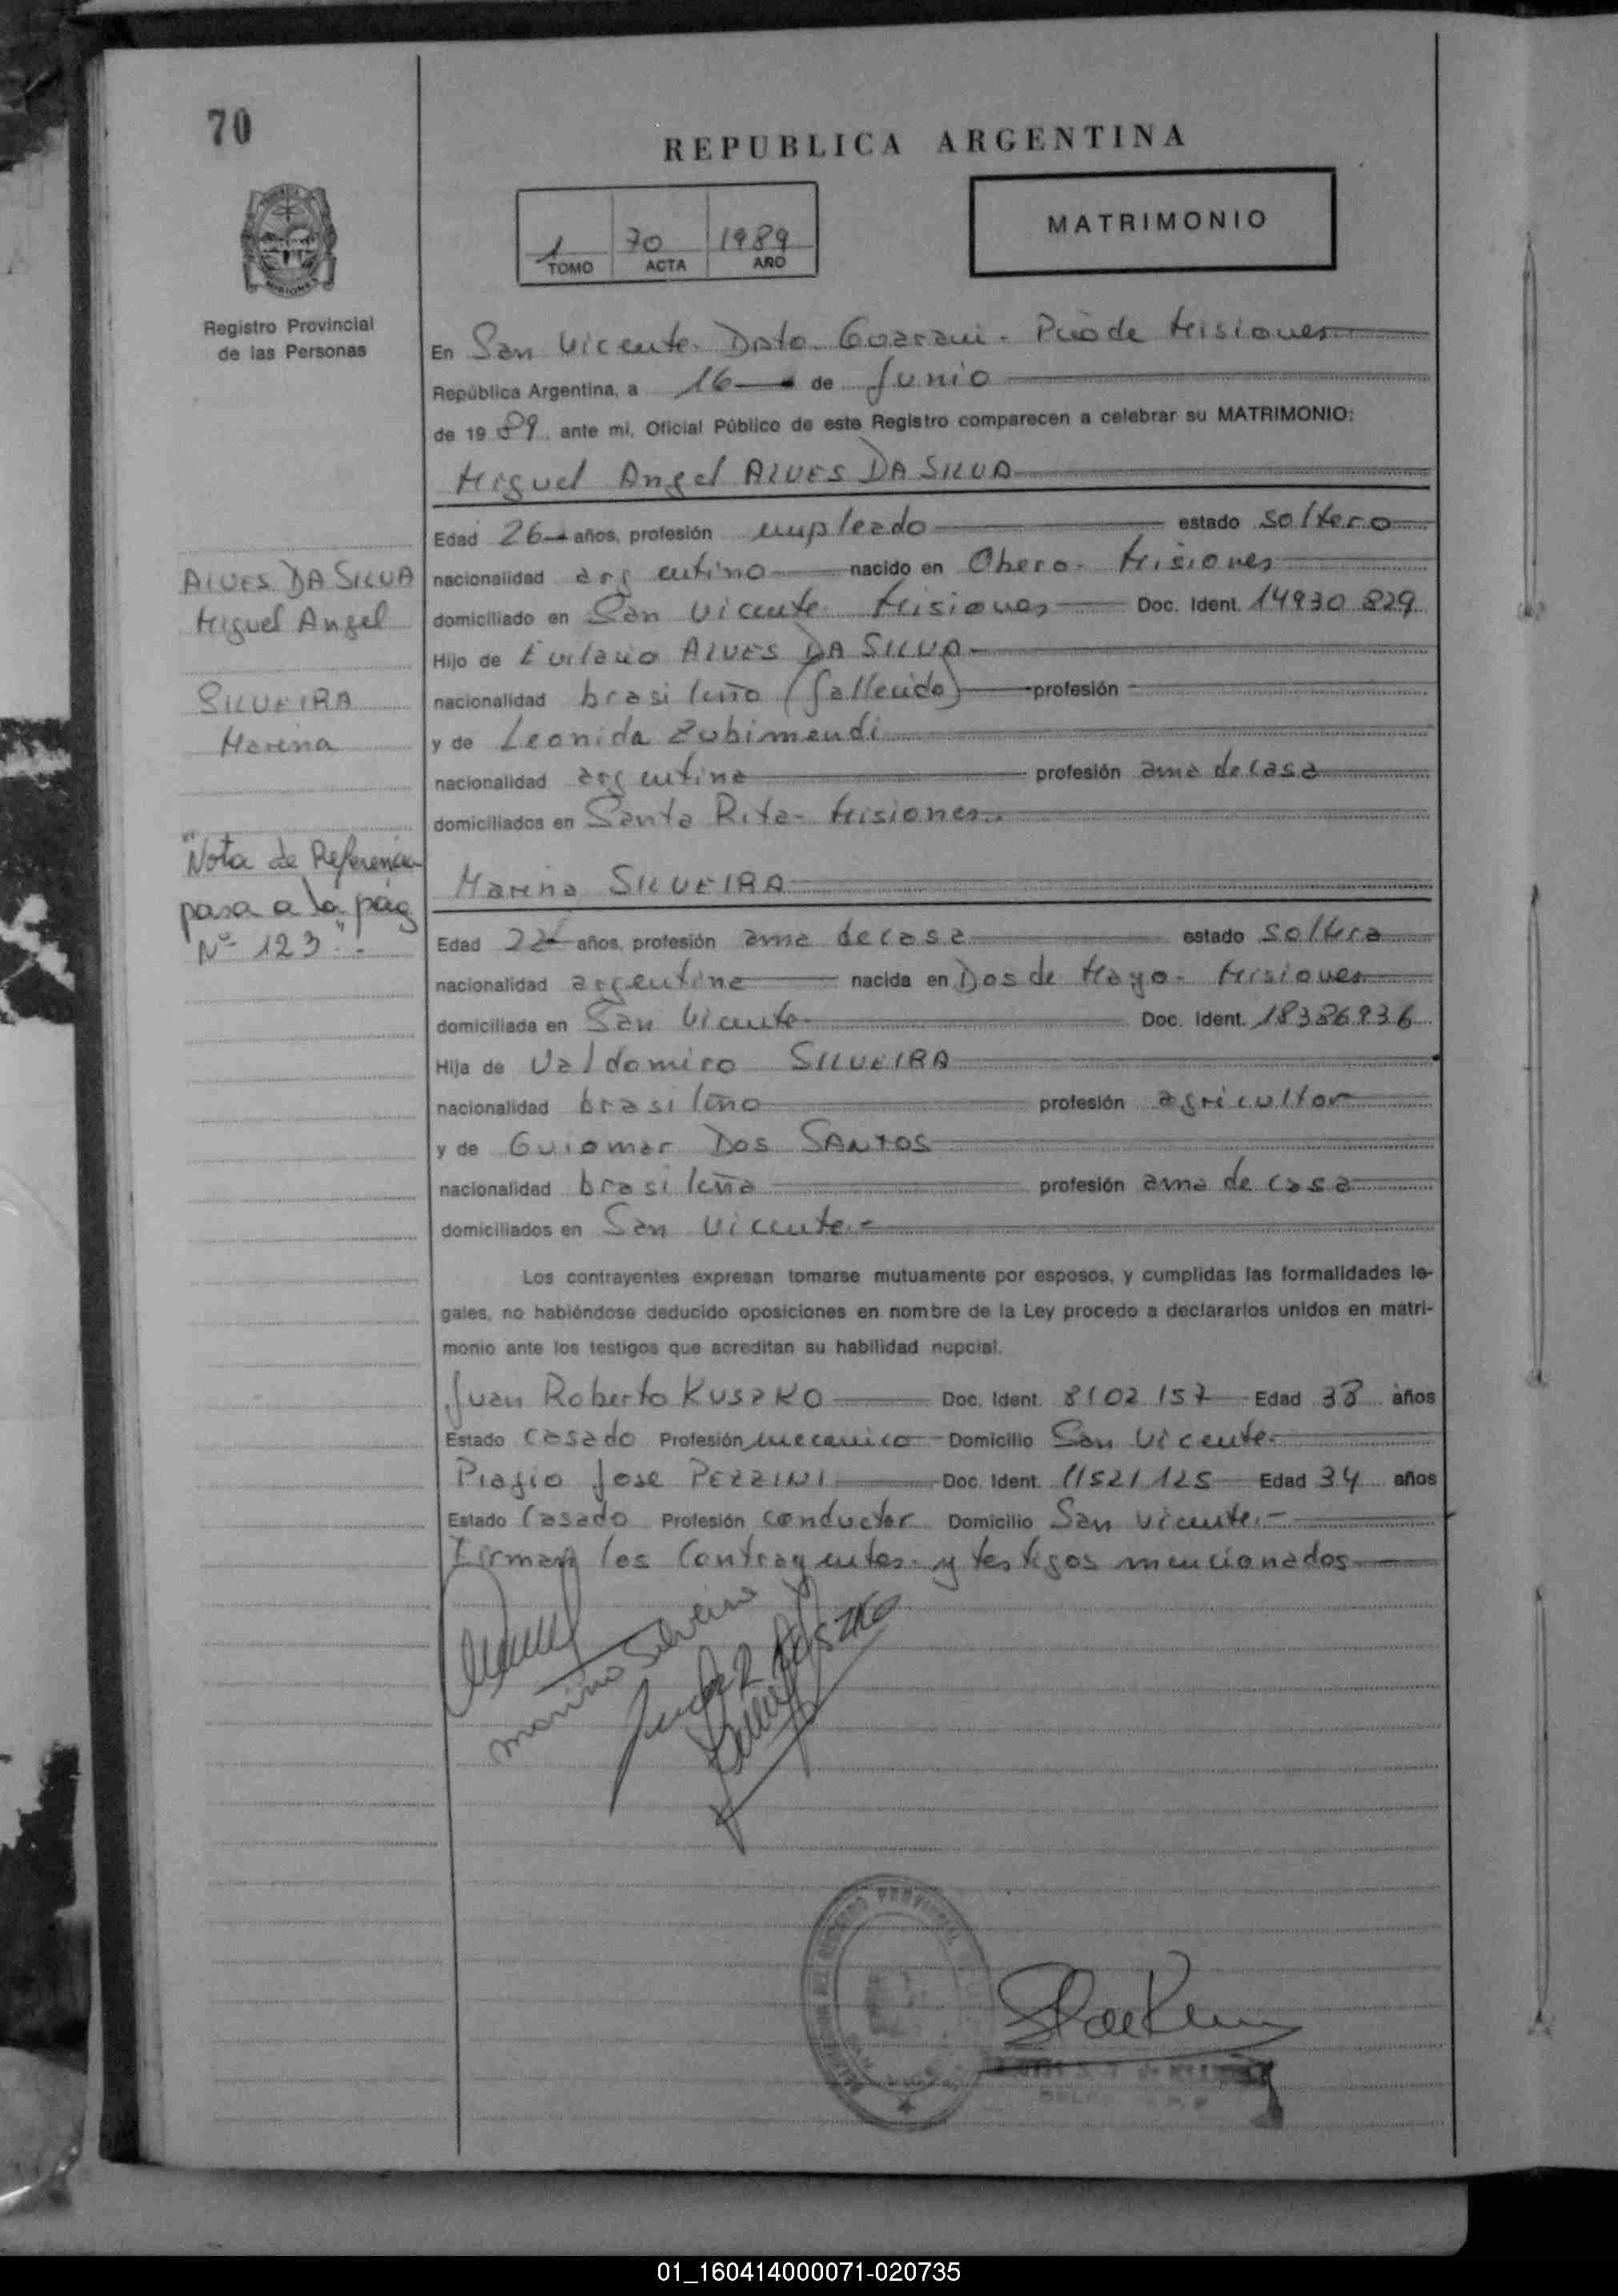 70
REPUBLICA ARGENTINA
MATRIMONIO
1 70 1989
TOMO ACTA AÑO
Registro Provincial
de las Personas
En San Vicente. Dpto. Guarani. Pcia de Misiones
República Argentina, a 16 de Junio
de 19 89, ante mi, Oficial Público de este Registro comparecen a celebrar su MATRIMONIO:
Miguel Angel ALVES DA SILVA
Edad 26 años, profesión empleado estado soltero
nacionalidad argentino nacido en Obera. Misiones
domiciliado en San Vicente Misiones Doc. Ident. 14930 829
Hijo de ALVES DA SILVA
nacionalidad brasileño (fallecido) profesión
y de Leonida Zubimendi
nacionalidad argentina profesión ama de casa
domiciliados en Santa Rita - Misiones.
ALVES DA SILVA
Miguel Angel
SILVEIRA
Marina
"Nota de Referencia
pasa a la pág
Nº 123".-
Marina SILVEIRA
Edad 22 años, profesión ama de casa estado soltera
nacionalidad argentina nacida en Dos de Mayo - Misiones
domiciliada en San Vicente Doc. Ident. 18386936
Hija de Valdomiro SILVEIRA
nacionalidad brasileño profesión agricultor
y de Guiomar DOS SANTOS
nacionalidad brasileña profesión ama de casa
domiciliados en San Vicente.-
Los contrayentes expresan tomarse mutuamente por esposos, y cumplidas las formalidades le-
gales, no habiéndose deducido oposiciones en nombre de la Ley procedo a declararlos unidos en matri-
monio ante los testigos que acreditan su habilidad nupcial.
Juan Roberto KUSZKO Doc. Ident. 8102 157 Edad 38 años
Estado casado Profesión mecanico Domicilio San Vicente.
Piagio Jose PEZZINI Doc. Ident. 11521.125 Edad 34 años
Estado Casado Profesión conductor Domicilio San Vicente.-
Firman los Contrayentes y testigos mencionados
marina Silveira
01_160414000071-020735